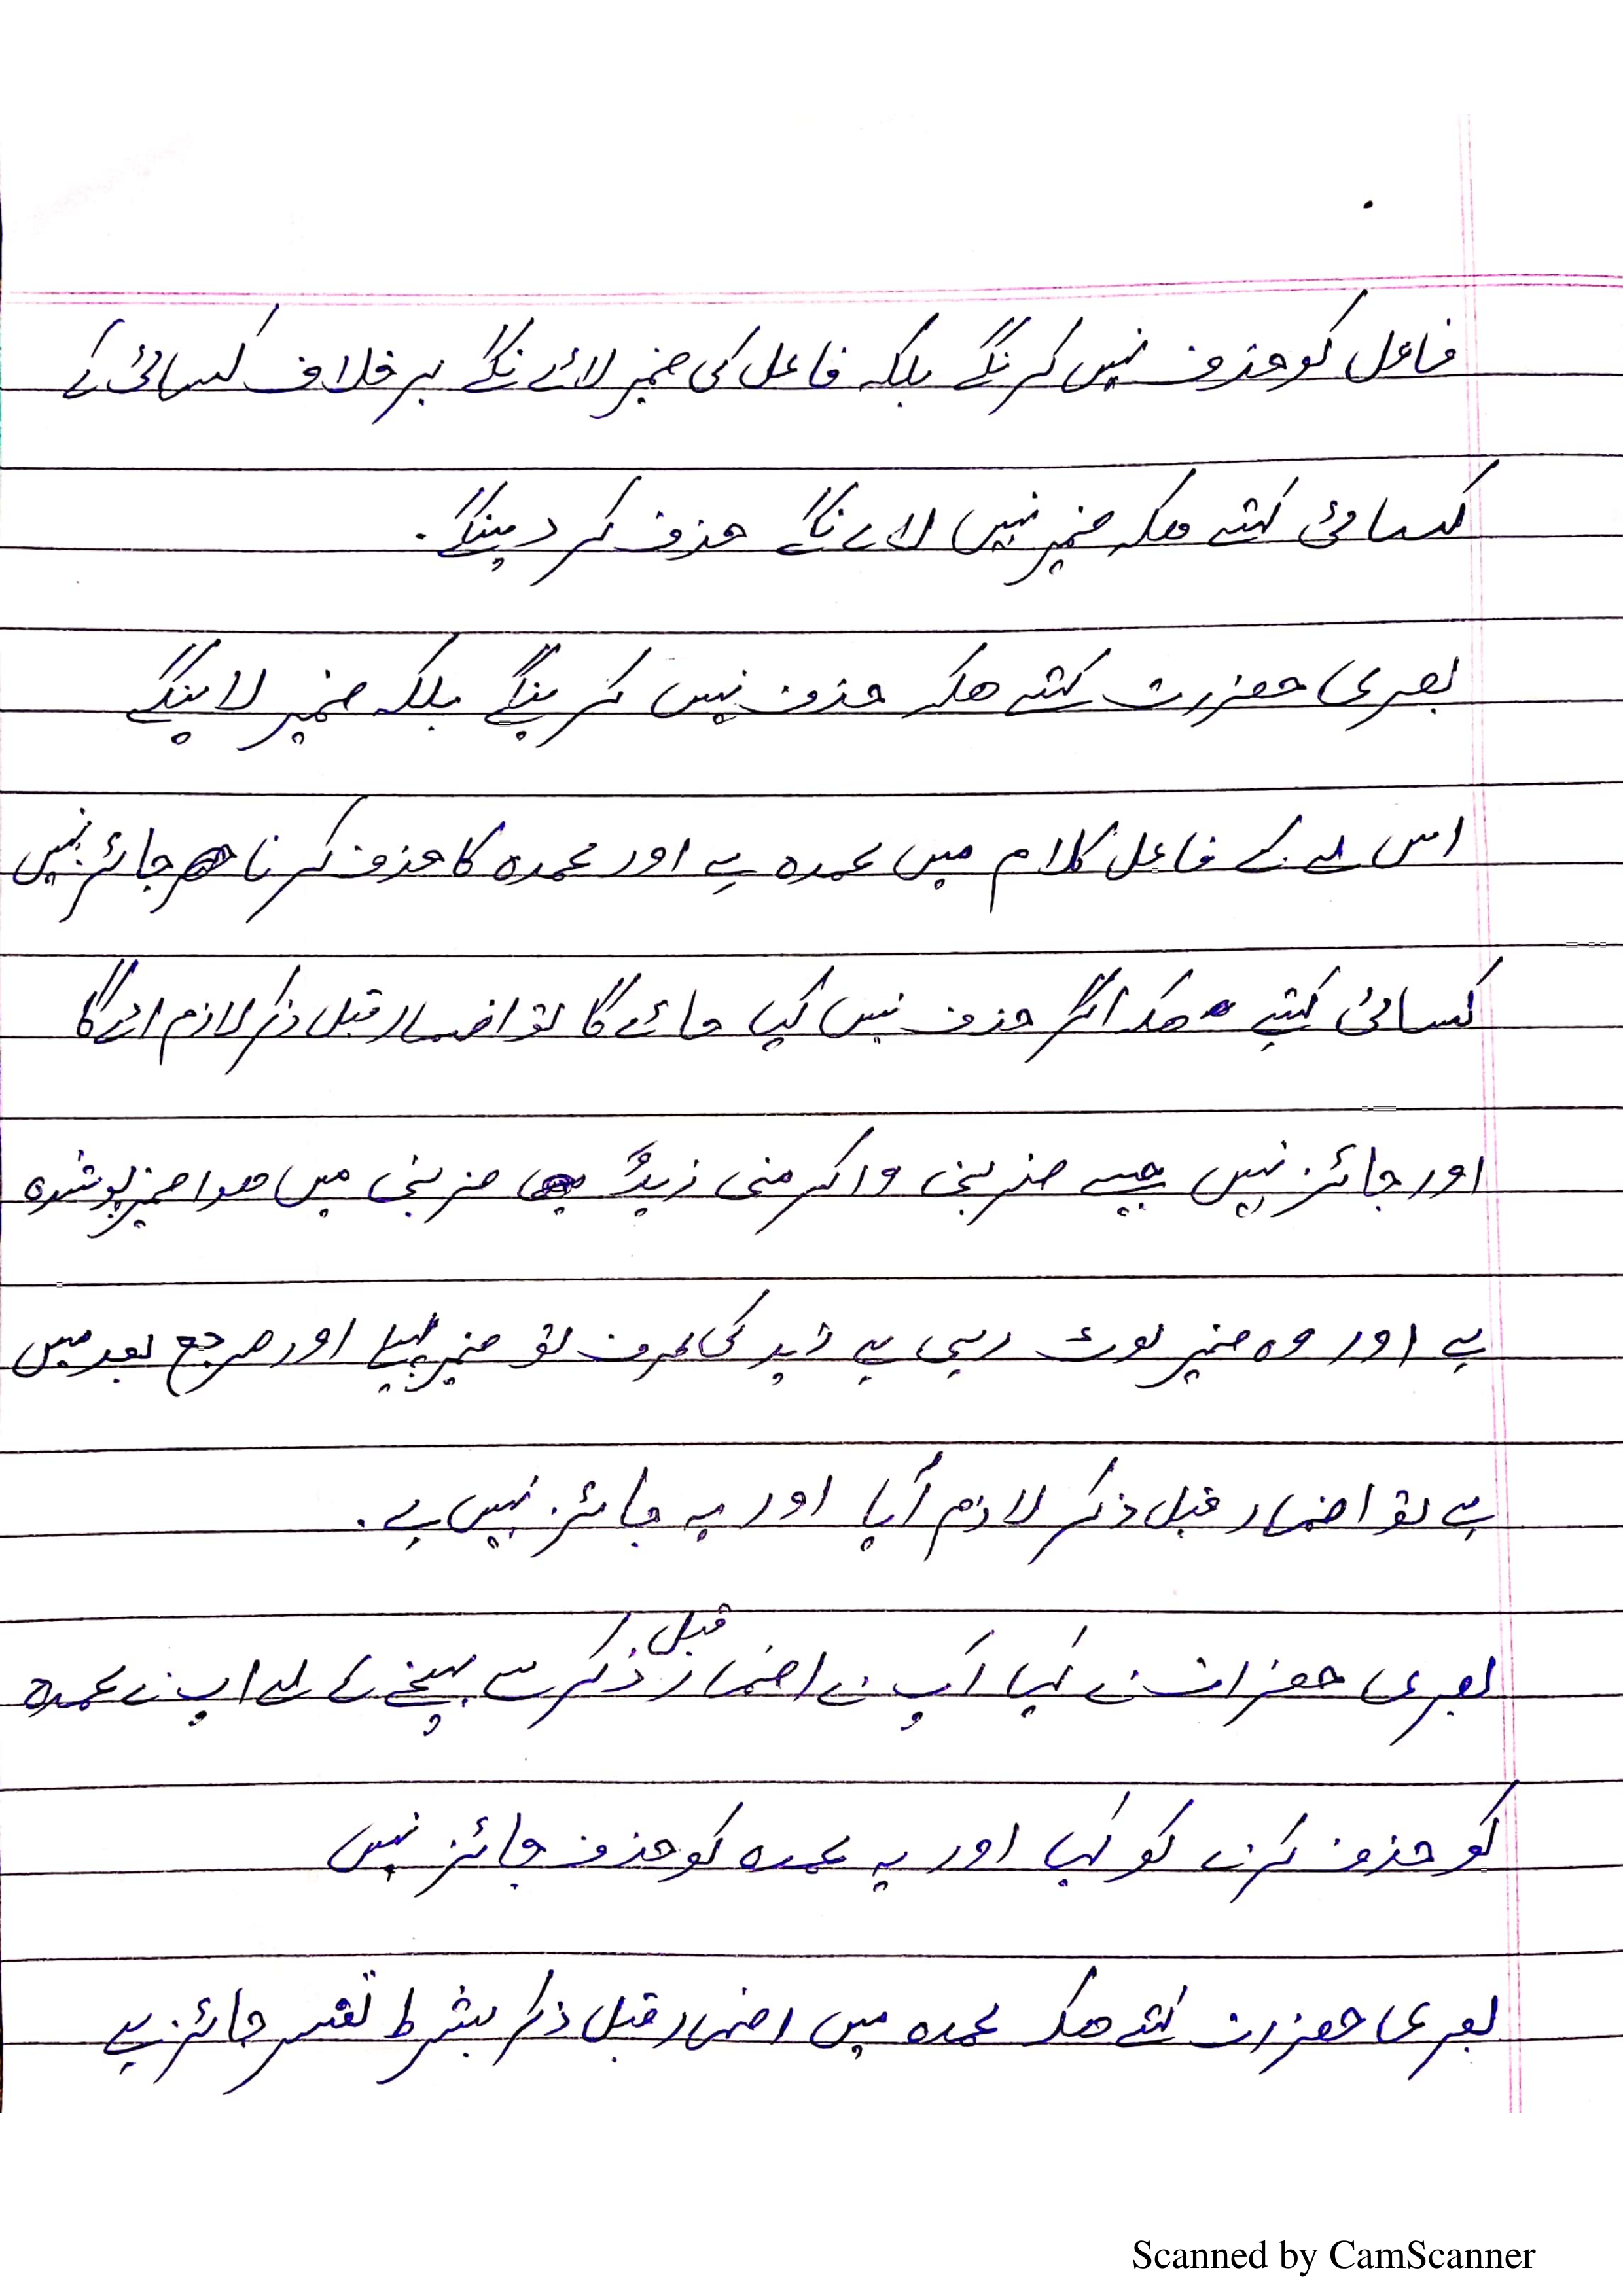 فاعل کو حذف نہیں کرنگے بلکہ فاعل کی ضمیر لائے نگے بر خلاف کسائی کے
کسائی کہتے ھکہ ضمیر نہیں لائے نگے حذف کر دینگے۔
بصری حضرت کہتے ھکہ حذف نہیں کرینگے بلکہ ضمیر لاینگے
اس لے کے فاعل کلام میں عمدہ ہے اور عمدہ کا حذف کرنا جائز نہیں
کسائی کہتے ھکہ اگر حذف نہیں کیا جائے گا تو اضمار قبل ذکر لازم ائے گا
اور جائز نہیں جیسے ضربنی واکرمنی زیدٌ ضربنی میں ھوا ضمیر پوشدہ
ہے اور وہ ضمیر لوٹ رہی ہے زید کی طرف تو ضمیر پہلیا اور مرجع بعد میں
ہے تو اضمار قبل ذکر لازم آیا اور یہ جائز نہیں ہے۔
بصری حضرات نے کہا آپ نے اضمار قبل ذکر سے بچنے کے لے اپ نے عمدہ
کو حذف کرنے کو کہا اور یہ عمدہ کو حذف جائز نہیں
بصری حضرات کہتے ھکہ عمدہ میں اضمار قبل ذکر بشرط تفسر جائز ہے
Scanned by CamScanner